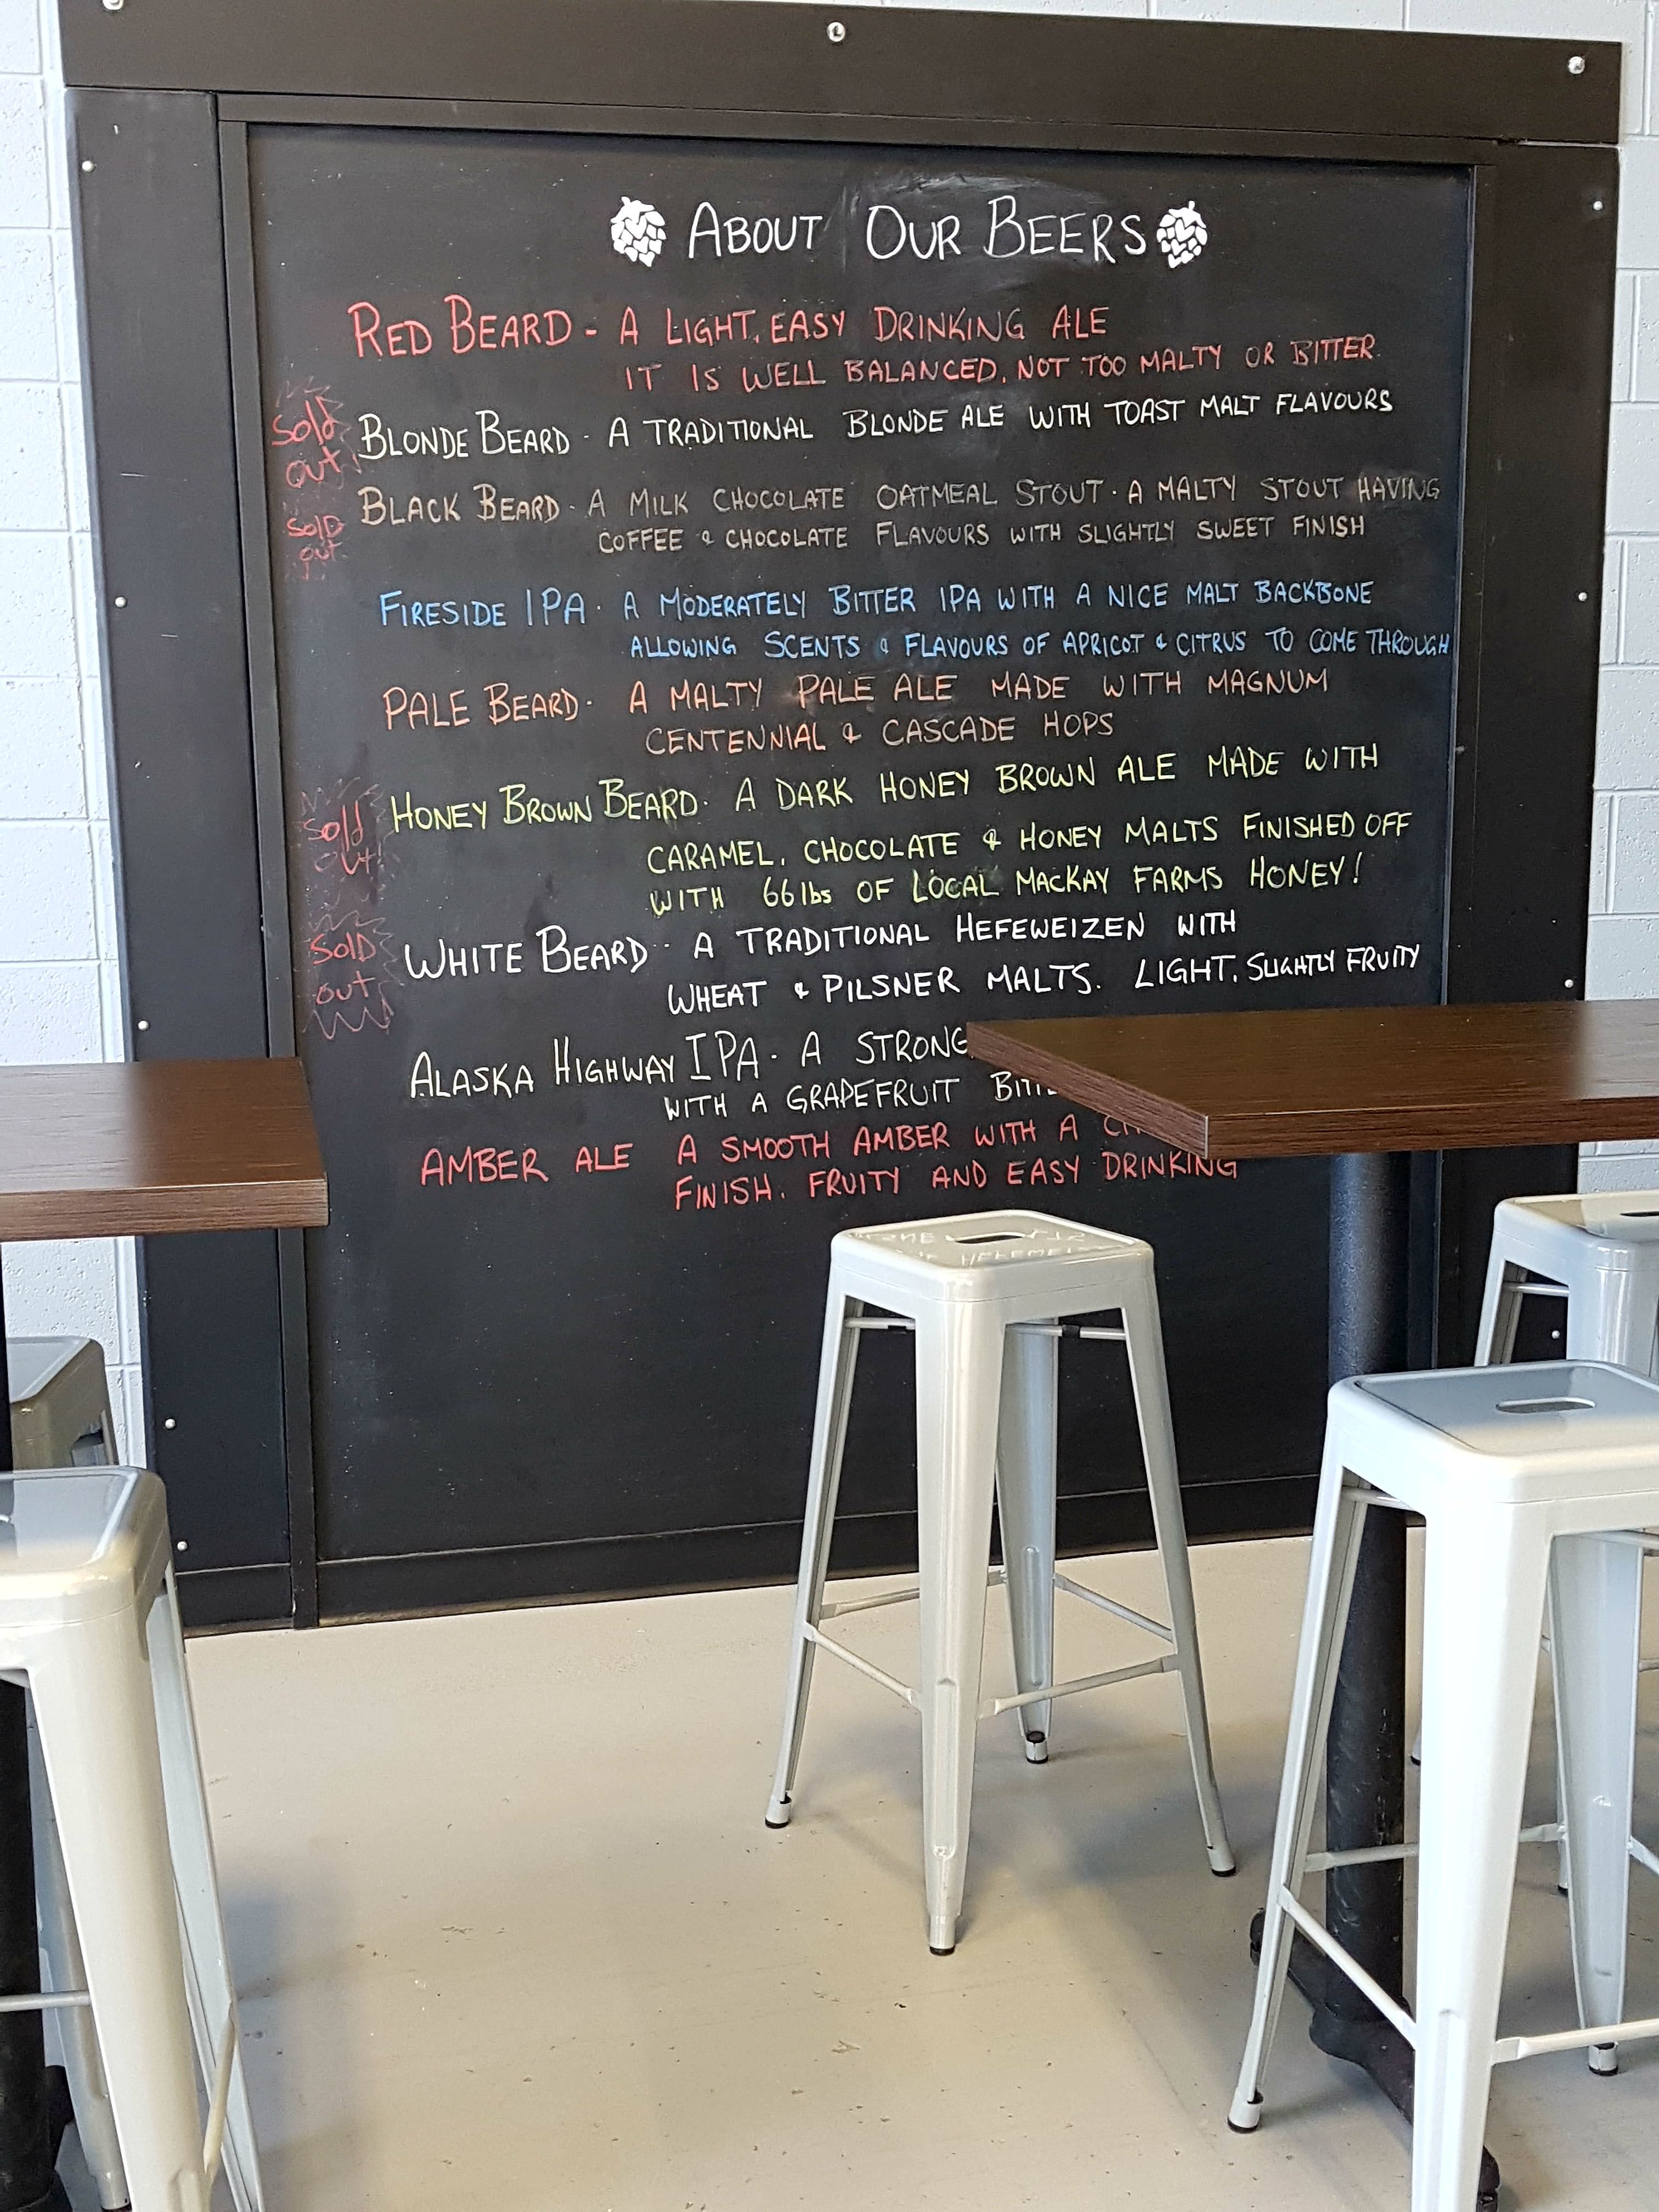 ABOUT OUR BEERS
RED BEARD - A LIGHT, EASY DRINKING ALE
IT IS WELL BALANCED, NOT TOO MALTY OR BITTER
Sold
out!
BLONDE BEARD - A TRADITIONAL BLONDE ALE WITH TOAST MALT FLAVOURS
SOLD
out
BLACK BEARD - A MILK CHOCOLATE OATMEAL STOUT. A MALTY STOUT HAVING
COFFEE & CHOCOLATE FLAVOURS WITH SLIGHTLY SWEET FINISH
FIRESIDE IPA - A MODERATELY BITTER IPA WITH A NICE MALT BACKBONE
ALLOWING SCENTS & FLAVOURS OF APRICOT & CITRUS TO COME THROUGH
PALE BEARD - A MALTY PALE ALE MADE WITH MAGNUM
CENTENNIAL & CASCADE HOPS
Sold
out!
HONEY BROWN BEARD - A DARK HONEY BROWN ALE MADE WITH
CARAMEL, CHOCOLATE & HONEY MALTS FINISHED OFF
WITH 66 lbs OF LOCAL MACKAY FARMS HONEY!
SOLD
out
WHITE BEARD - A TRADITIONAL HEFEWEIZEN WITH
WHEAT & PILSNER MALTS. LIGHT, SLIGHTLY FRUITY
ALASKA HIGHWAY IPA - A STRONG
WITH A GRAPEFRUIT
AMBER ALE A SMOOTH AMBER WITH A
FINISH. FRUITY AND EASY DRINKING